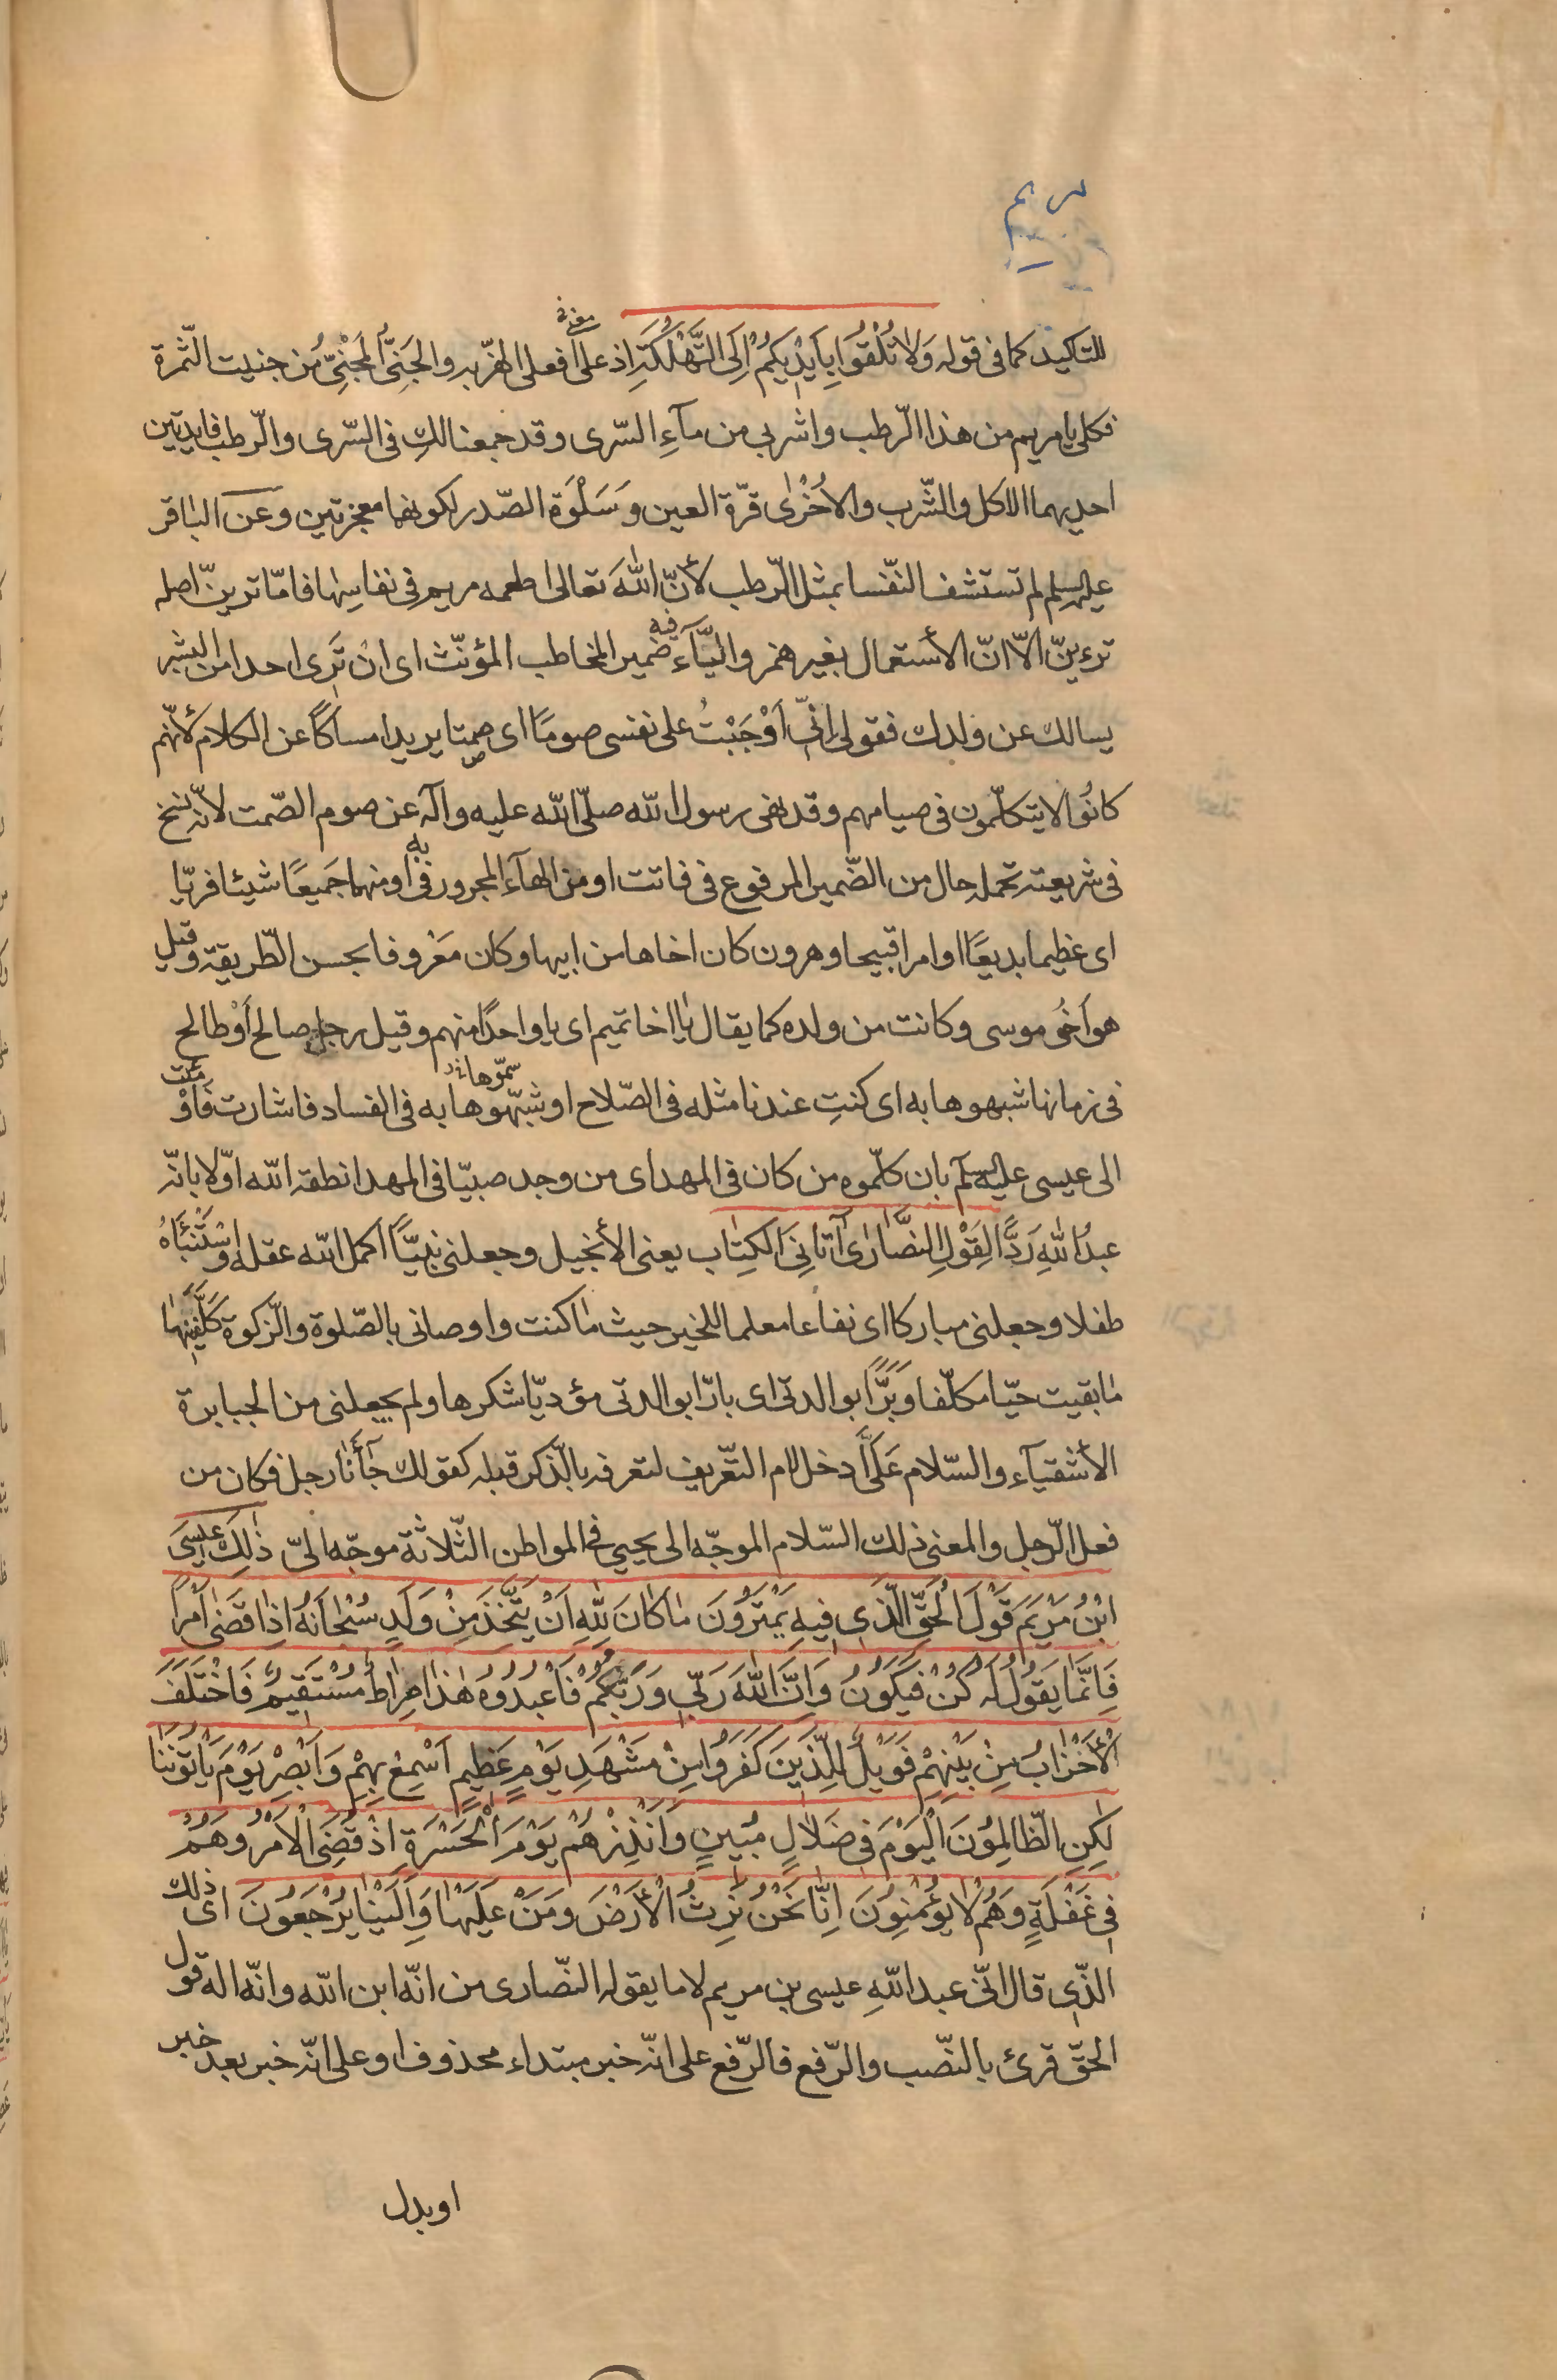 مريم
للتاكيد كما فى قوله وَلاٰ تُلْقوُا بِاَيْدِيكمُْ اِلَى التَّهْلُكَةِ اذ على معنى افعلى الهزّ به والجَنِىُّ الْمَجْنِىُّ من جنيت الثّمرة
فكلى يا مريم من هذا الرّطب واشربى من مآءِ السّرى وقد جمعنا لكِ فى السّرى والرّطب فايدتين
احديهما الاكل والشّرب والاُخْرٰى قرّة العين وَسَلْوَة الصّدر لكونهما معجزتين وعن الباقر
عليه السلم لم تستشف النّفسا بمثل الرّطب لأنّ اللهَ تعالى اطعمه مريم فى نفاسِها فامّا ترينّ اصله
ترءينّ الاّ انّ الأستعمال بغير همز واليآء فيه ضمير المخاطب المؤنّث اى ان تَرى احدا من البشر
يسالك عن ولدك فقولى انّى اَوْجَبْتُ على نفسى صومًا اى صمتا يريد امساكًا عن الكلام لأنّهم
كانُوا لا يتكلّمون فى صيامهم وقد نهى رسول الله صلّى الله عليه وآله عن صوم الصّمت لانّه نسخ
فى شريعته تحمله حال من الضّمير المرفوع فى فاتت او من الهآء المجرور فى به او منهما جَميعًا شيئا فريّا
اى عظيما بديعًا او امرا قبيحا وهرون كان اخاها من ابيها وكان مَعْروفا بحسن الطّريقة وقيل
هو اَخُو موسى وكانت من ولده كما يقال يا اخا تميم اى يا واحدًا منهم وقيل رجل صالح أوْ طالح
فى زمانها شبهوها به اى كنتِ عندنا مثله فى الصّلاح او شبّهوها سمّوها به فى الفساد فاشارت فَاَوْمَئَت
الى عيسى عليه السلم بان كلّموه من كان فى المهد اى من وجد صبيّا فى المهد انطقه الله اوّلا بانّه
عبدُ اللهِ رَدًّا لِقَوْلِ النَّصٰارٰى آتٰانِىَ الكِتٰاب يعنى الأنجيل وجعلنى نبيّاً اكمل الله عقله وَاسْتَنْبَأهُ
طفلا وجعلنى مباركا اى نفاعا معلما للخير حيث مٰا كنت واوصانى بالصّلوة والزّكوة كَلَّفَنِيهٰا
مٰا بقيت حيّا مكلّفا وَبَرًّا بوالدتى اى بارّا بوالدتى مؤديّا شكرها ولم يجعلنى من الجبابرة
الأشقيآء والسّلام عَلَىَّ ادخل لام التّعريف لتعرفه بالذّكر قبله كقولك جآءَنٰا رجل فكان من
فعل الرّجل والمعنى ذلك السّلام الموجّه الى يحيي فى المواطن الثّلاثة موجّه الىّ ذٰلِكَ عيسَى
ابْنُ مَرْيَمَ قَوْلَ الْحَقِّ الَّذى فيهِ يَمْتَرُونَ مٰا كٰانَ لِلّٰهِ اَنْ يَتَّخِذَ مِنْ وَلَدٍ سُبْحٰانَهُ اِذٰا قَضٰى اَمْراً
فَاِنَّمٰا يَقُولُ لَهُ كُنْ فَيَكُونُ وَاِنَّ اللهَ رَبّى وَرَبُّكُمْ فَاعْبُدُوهُ هٰذٰا صِرٰاطٌ مُسْتَقيمٌ فَاخْتَلَفَ
الْأَحْزٰابُ مِنْ بَيْنِهِمْ فَوَيْلٌ لِلَّذينَ كَفَرُوا مِنْ مَشْهَدِ يَوْمٍ عَظيمٍ اَسْمِعْ بِهِمْ وَاَبْصِرْ يَوْمَ يَأتُونَنٰا
لٰكِنِ الظّٰالِمُونَ الْيَوْمَ فى ضَلاٰلٍ مُبينٍ وَاَنْذِرْهُمْ يَوْمَ الْحَسْرَةِ اِذْ قُضِىَ الْاَمْرُ وَهُمْ
فى غَفْلَةٍ وَهُمْ لاٰ يُؤْمِنُونَ اِنّٰا نَحْنُ نَرِثُ الْأَرْضَ وَمَنْ عَلَيْهٰا وَاِلَيْنٰا يُرْجَعُونَ اى ذلك
الّذى قال انّى عبد اللهِ عيسى بن مريم لا ما يقوله النّصارى من انّه ابن الله وانّه اله قول
الحقّ قرئ بالنّصب والرّفع فالرّفع على انّه خبر مبتداء محذوف او على انّه خبر بعد خبر
او بدل